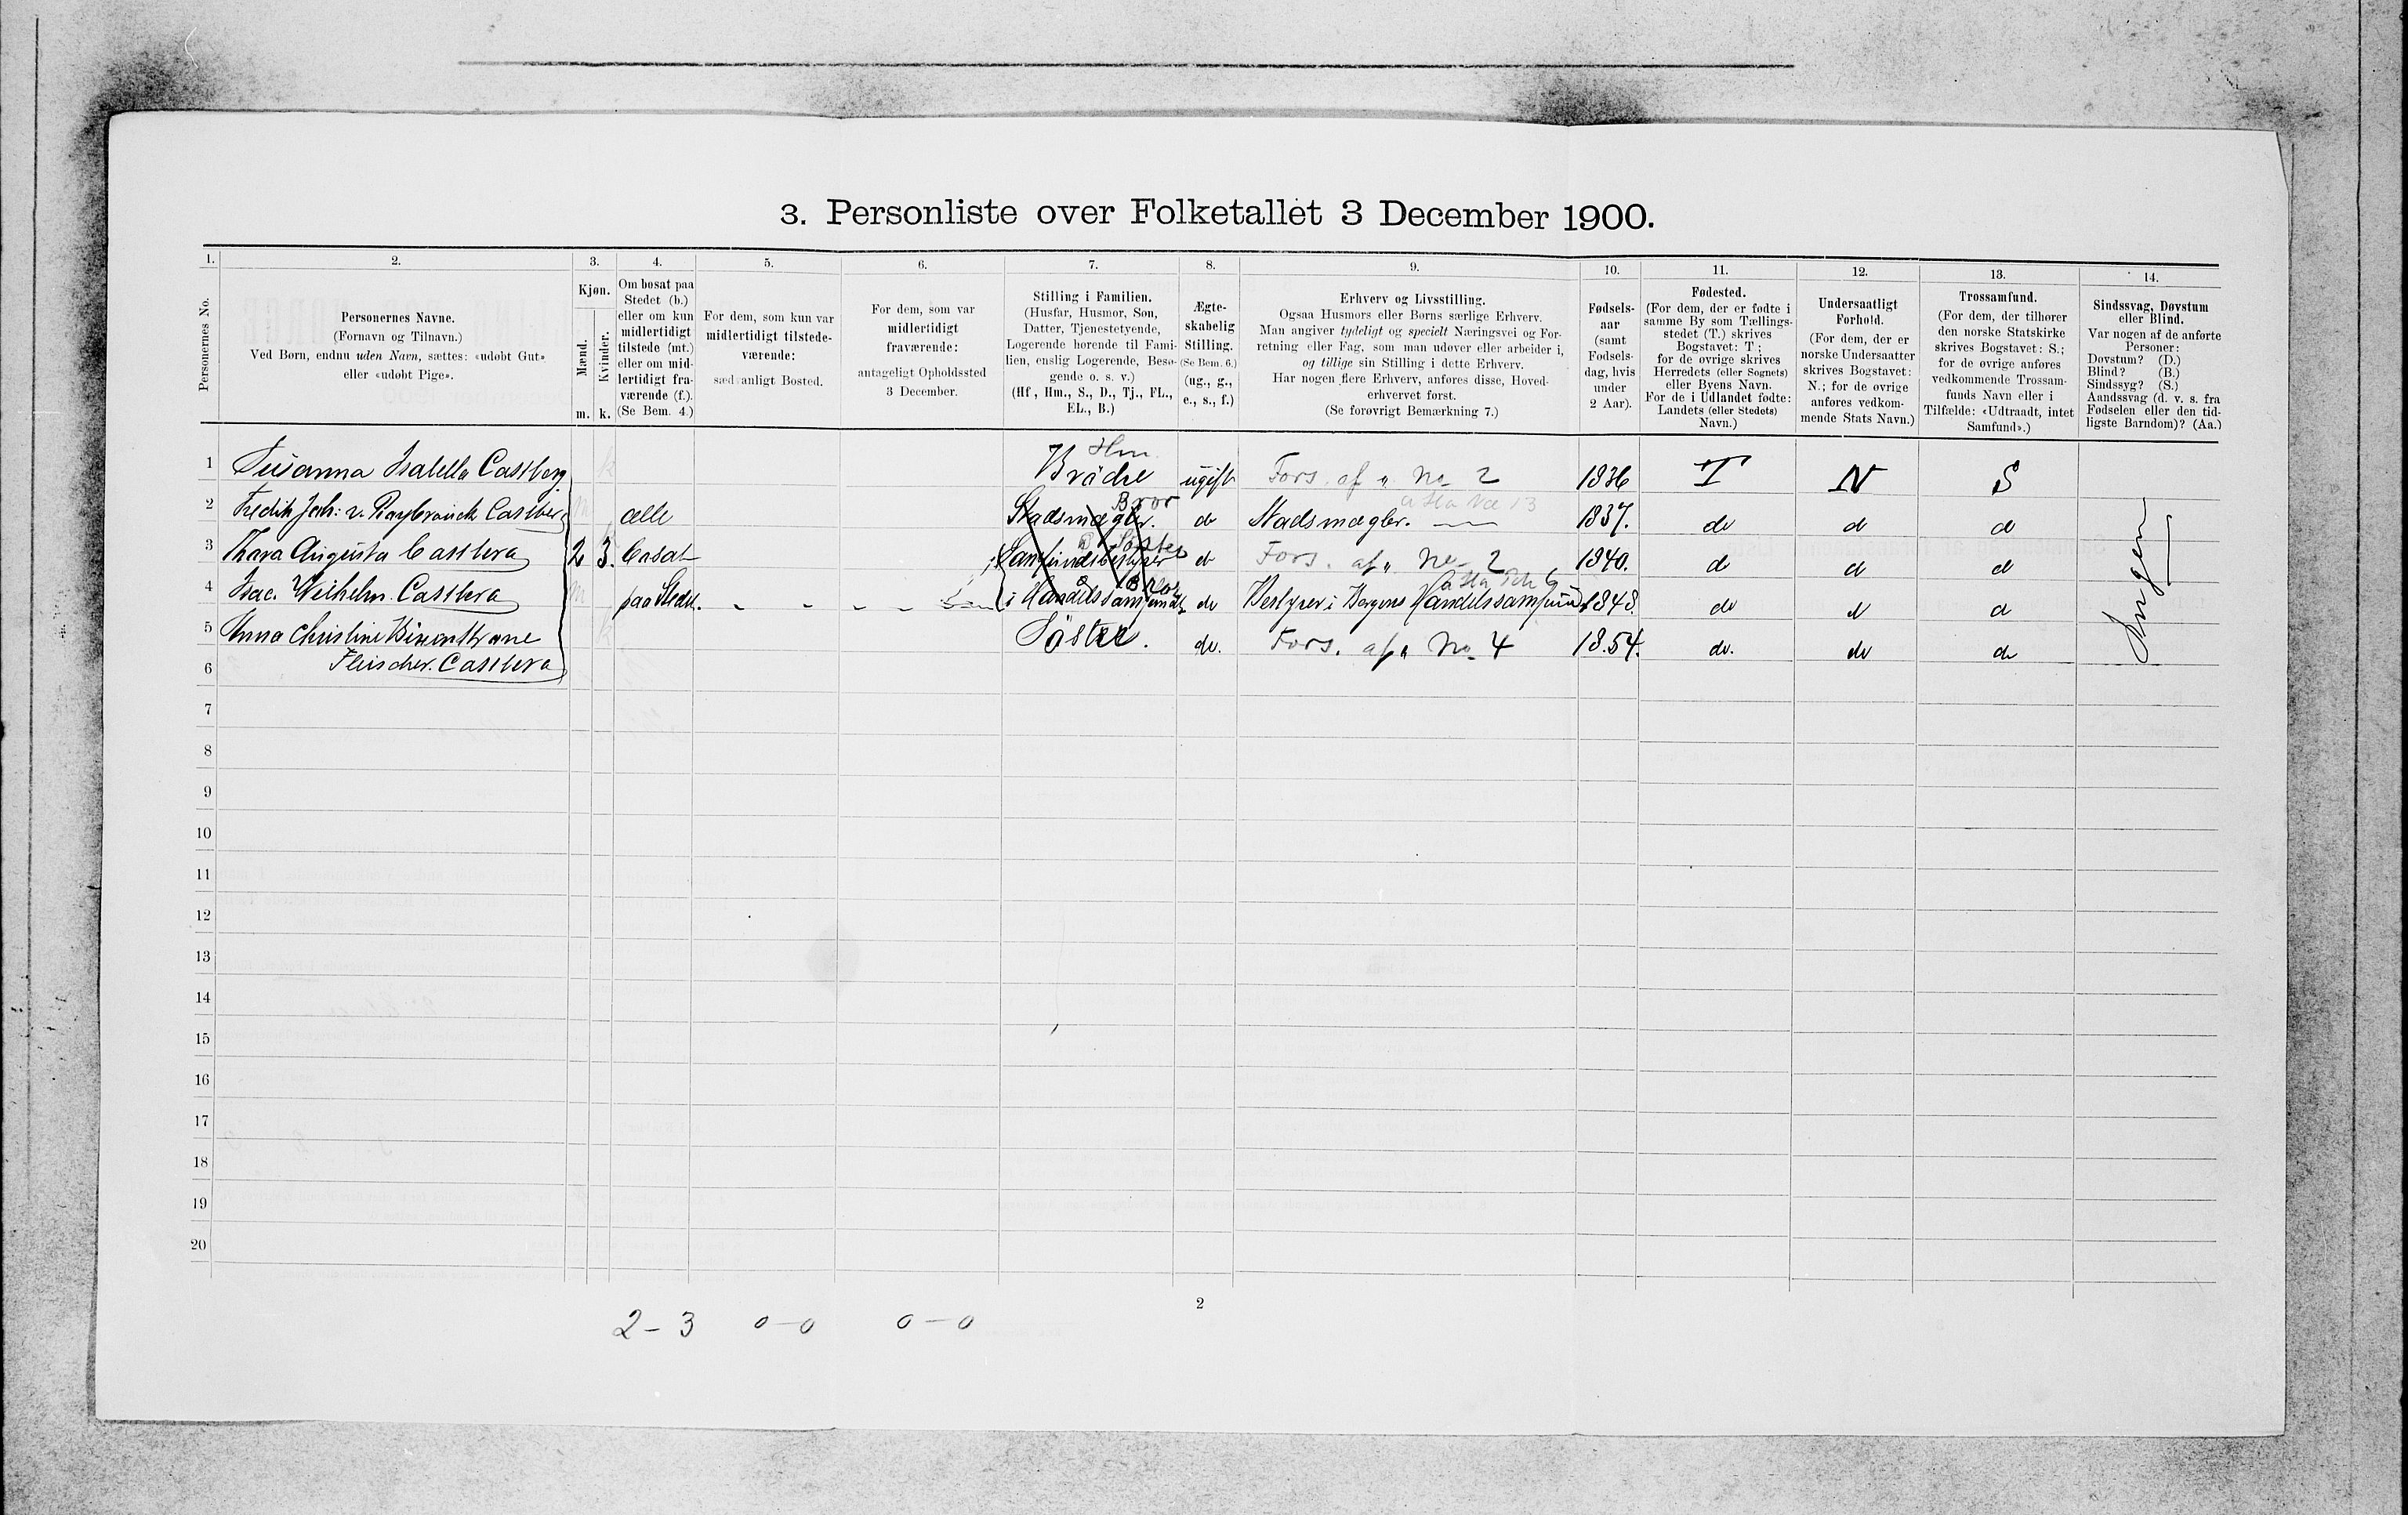 3. Personliste over Folketallet 3 December 1900.
1. 2. 3. 4. 5. 6. 7. 8. 9. 10. 11. 12. 13. 14.
Personernes No.
Personernes Navne.
(Fornavn og Tilnavn.)
Ved Børn, endnu uden Navn, sættes: «udøbt Gut»
eller «udøbt Pige».
Kjøn.
Mænd.
Kvinder.
m. k.
Om bosat paa
Stedet (b.)
eller om kun
midlertidigt
tilstede (mt.)
eller om mid-
lertidigt fra-
værende (f.).
(Se Bem. 4.)
For dem, som kun var
midlertidigt tilstede-
værende:
sædvanligt Bosted.
For dem, som var
midlertidigt
fraværende:
antageligt Opholdssted
3 December.
Stilling i Familien.
(Husfar, Husmor, Søn,
Datter, Tjenestetyende,
Logerende hørende til Fami-
lien, enslig Logerende, Besø-
gende o. s. v.)
(Hf, Hm., S., D., Tj., FL.,
EL., B.)
Ægte-
skabelig
Stilling.
(Se Bem. 6.)
(ug., g.,
e., s., f.)
Erhverv og Livsstilling.
Ogsaa Husmors eller Børns særlige Erhverv.
Man angiver tydeligt og specielt Næringsvei og For-
retning eller Fag, som man udøver eller arbeider i,
og tillige sin Stilling i dette Erhverv.
Har nogen flere Erhverv, anføres disse, Hoved-
erhvervet først.
(Se forøvrigt Bemærkning 7.)
Fødsels-
aar
(samt
Fødsels-
dag, hvis
under
2 Aar).
Fødested.
(For dem, der er fødte i
samme By som Tællings-
stedet (T.) skrives
Bogstavet: T;
for de øvrige skrives
Herredets (eller Sognets)
eller Byens Navn.
For de i Udlandet fødte:
Landets (eller Stedets)
Navn.)
Undersaatligt
Forhold.
(For dem, der er
norske Undersaatter
skrives Bogstavet:
N.; for de øvrige
anføres vedkom-
mende Stats Navn.)
Trossamfund.
(For dem, der tilhører
den norske Statskirke
skrives Bogstavet: S.;
for de øvrige anføres
vedkommende Trossam-
funds Navn eller i
Tilfælde: «Udtraadt, intet
Samfund».)
Sindssvag, Døvstum
eller Blind.
Var nogen af de anførte
Personer:
Døvstum? (D.)
Blind? (B.)
Sindssyg? (S.)
Aandssvag (d. v. s. fra
Fødselen eller den tid-
ligste Barndom)? (Aa.)
1 Susanna Isabella Castberg k Hm Brödre ugift Fors. af " No 2 1836 T N S
2 Fredrik Joh: v. Castberg m alle Stadsmægler. Bror do Stadsmægler. 1837. do d d
3 Thara Augusta Castberg 2 3. bosat Söster d Fors. af " No 2 1840. d d d
4 Isac. Wilhelm. Castberg m paa Stedet. i Handelssamfundet Bror do Bestyrer i Bergens Handelssamfund 1848. do d d
5 Anna Christine k Söster. do. Fors. af " No 4 18.54. do. do d
6 Fleischer. Castberg
Ingen
7
8
9
10
11
12
13
14
15
16
17
18
19
20
2
2 – 3 0 – 0 0 – 0